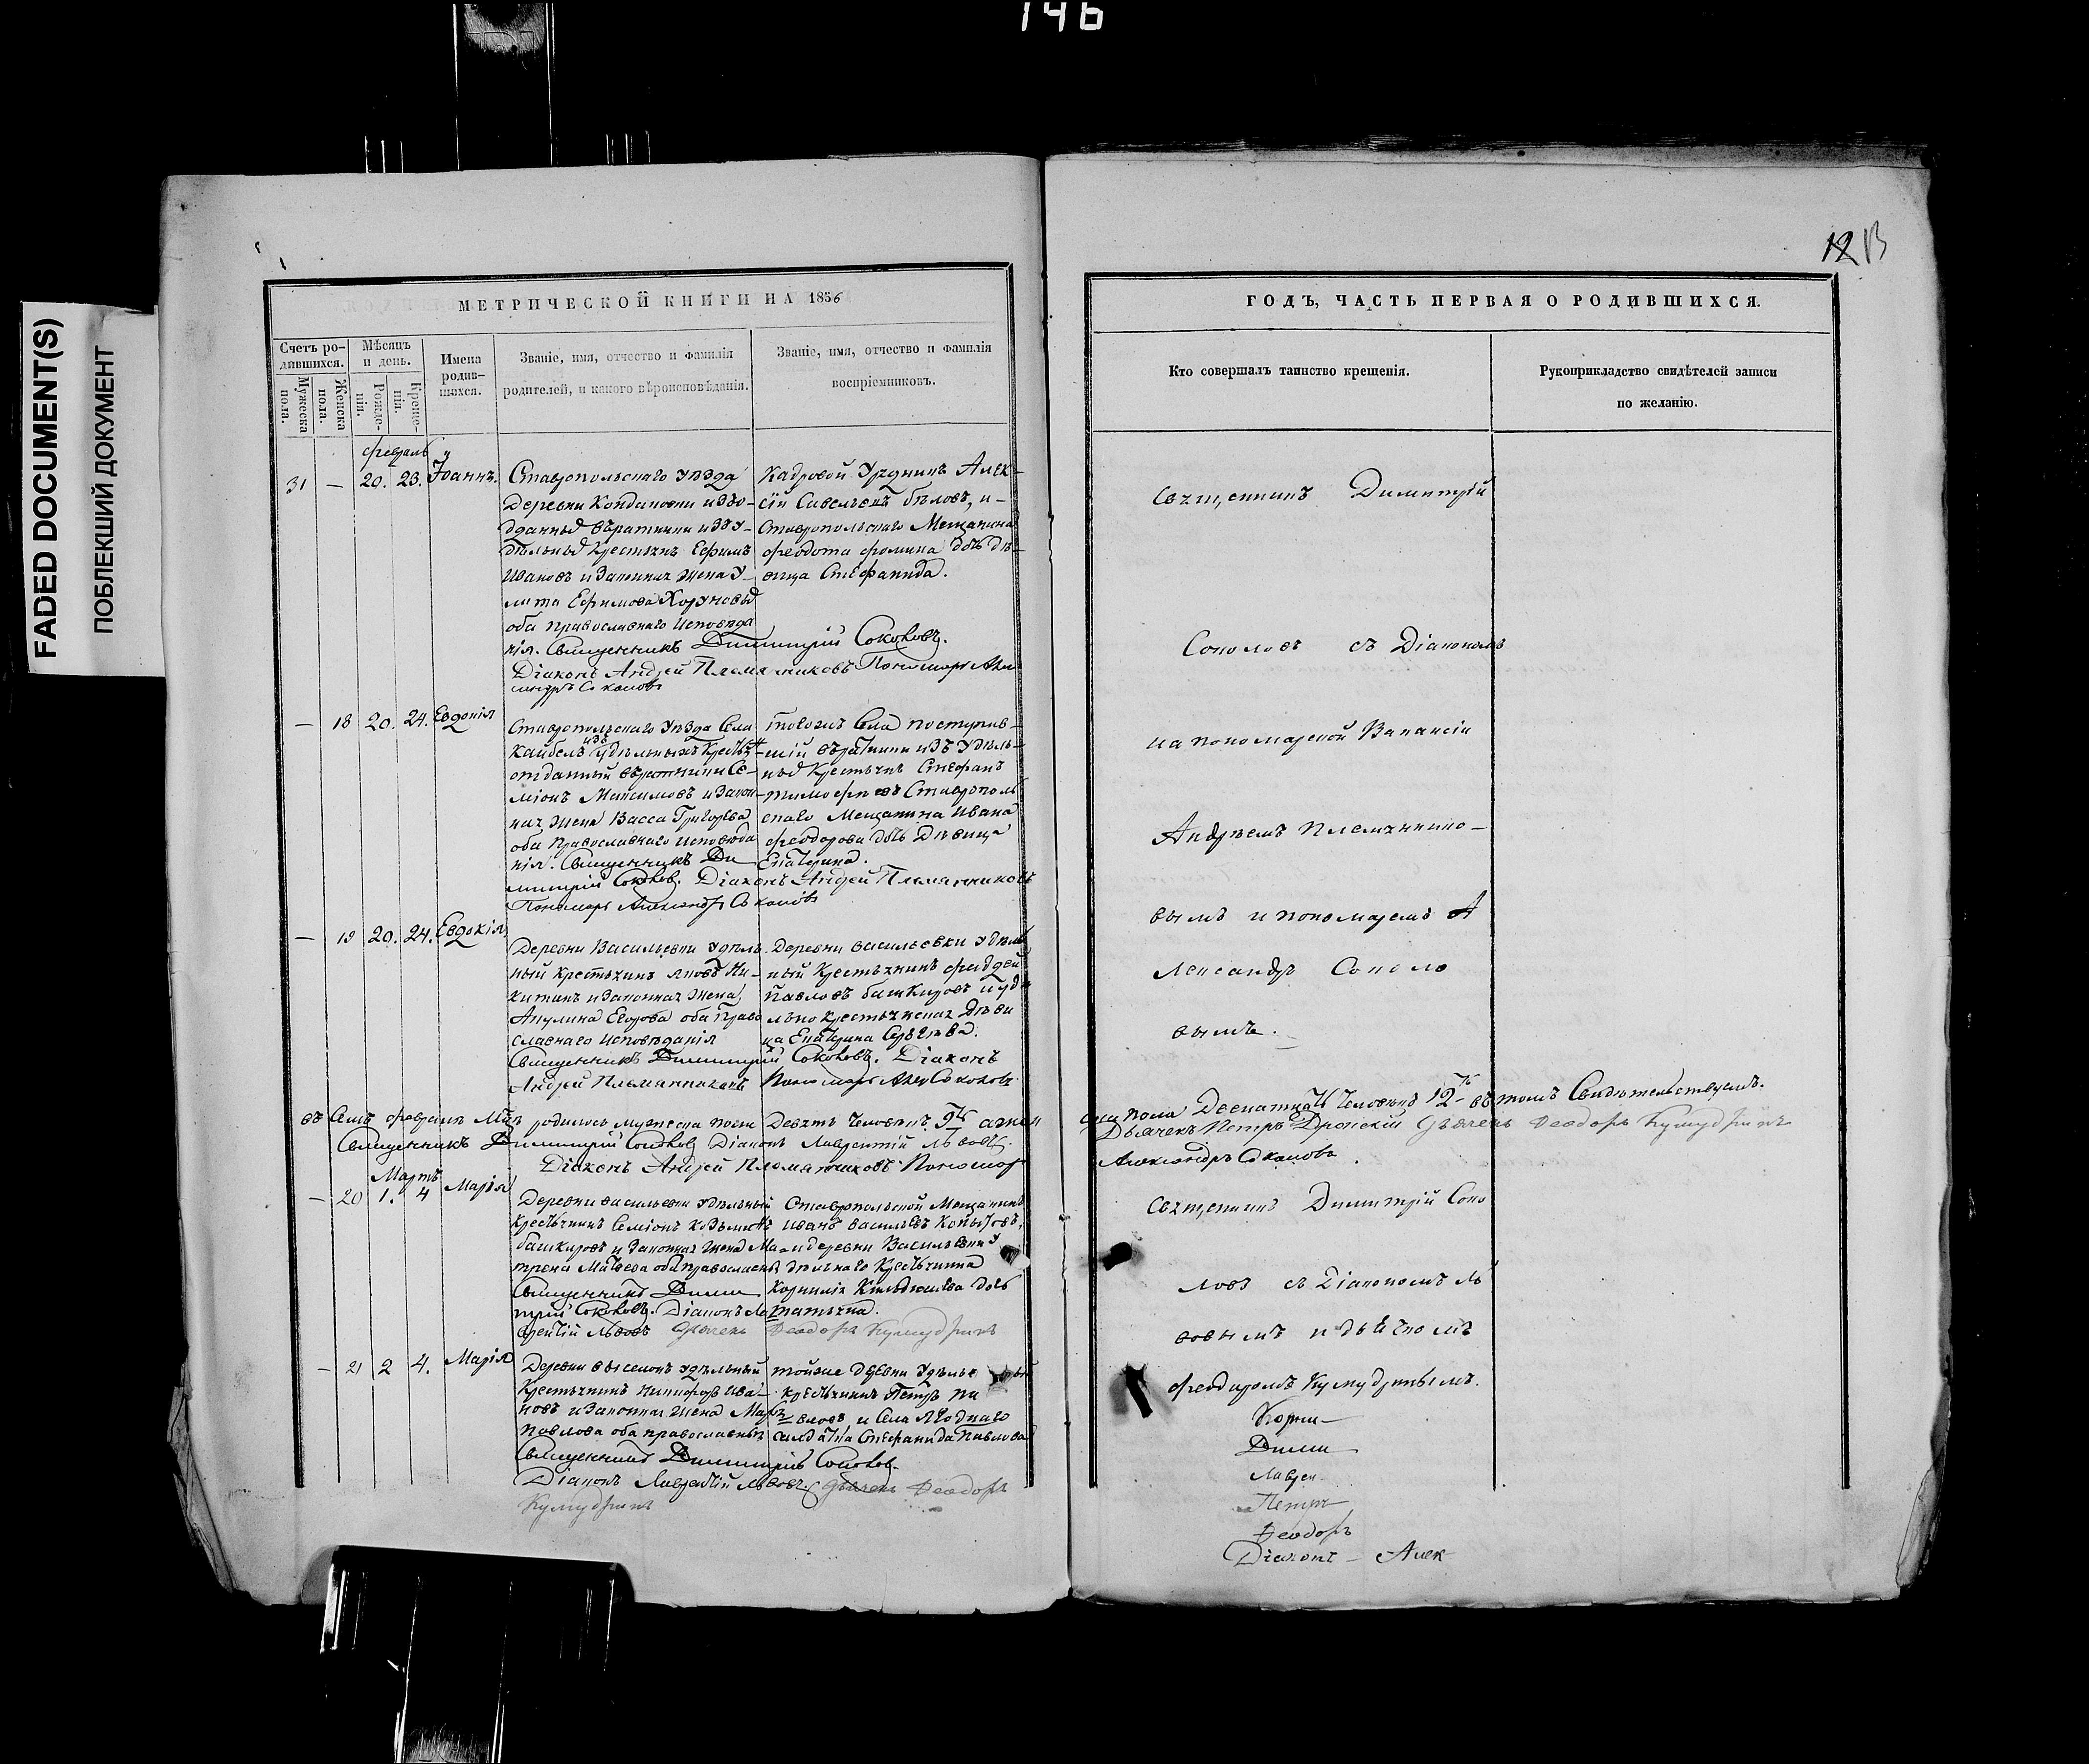 146
FADED DOCUMENT(S)
ПОБЛЕКШИЙ ДОКУМЕНТ
12 13
МЕТРИЧЕСКОЙ КНИГИ НА 1856
Счетъ ро-
дившихся.
Мужеска
пола.
Женска
пола.
Мѣсяцъ
и день.
Рожде-
нія.
Креще-
нія.
Имена
родив-
шихся.
Званіе, имя, отчество и фамилія
родителей, и какого вѣроисповѣданія.
Званіе, имя, отчество и фамилія
воспріемниковъ.
февраль
31 — 20. 23. Іоаннъ.
Ставропольскаго Уѣзда
Деревни Кондаковки изъ
въ ратники изъ У-
дѣльныхъ Крестьянъ Ефимъ
Ивановъ и Законная Жена У-
лита Ефимова
оба Православнаго Исповѣда
нія. Священникъ Димитрій Соколовъ.
Діаконъ Андрей Племянниковъ Пономарь Алек
сандръ Соколовъ
Алек-
сій Савельевъ Бѣловъ, и-
Ставропольскаго Мещанина
Феодота Фомина дочь дѣ-
вица Стефанида.
— 18 20. 24. Евдокія
Ставропольскаго Уѣзда Села
изъ удѣльныхъ Крестьян
отданный въ ратники Се-
міонъ Максимовъ и Закон-
ная Жена Васса Григорьева
оба Православнаго Исповѣда
нія. Священникъ Ди
митрій Соколовъ. Діаконъ Андрей Племянниковъ
Пономарь Александръ Соколовъ
Тогожъ Села поступив-
шій въ ратники изъ Удѣль-
ныхъ Крестьянъ Стефанъ
Тимофеевъ Ставрополь
скаго Мещанина Ивана
Феодорова дочь Дѣвица
Екатерина.
— 19 20. 24. Евдокія
Деревни Васильевки Удѣль
ный Крестьянинъ Яковъ Ни-
китинъ и Законная Жена
Акулина Егорова оба Право
славнаго Исповѣданія
Священникъ Димитрій Соколовъ. Діаконъ
Андрей Племянниковъ Пономарь Алек Соколовъ
Деревни Васильевки Удѣль
ный Крестьянинъ Фаддей
Павловъ Башкировъ и удѣ
льно крестьянская Дѣви
ца Екатерина Сергѣева.
въ Семъ Февралѣ М-цѣ родилось мужеска пола Девять Человѣкъ 9-ть а жен
Священникъ Димитрій Соколовъ Діаконъ Лаврентій Львовъ
Діаконъ Андрей Племянниковъ Пономарь
Мартъ
— 20 1. 4 Марія
Деревни Васильевки Удѣльный
Крестьянинъ Семіонъ Козьминъ
Башкировъ и Законная Жена Ма-
трена Матвеева оба православные
Священникъ Дими
трій Соколовъ. Діаконъ Ла
врентій Львовъ Дьячекъ Феодоръ Кумудринъ
Ставропольской Мещанинъ
Иванъ Васильевъ Копытовъ,
и деревни Васильевки У
дѣльнаго Крестьянина
Корнилія дочь
Татьяна.
— 21 2 4. Марія
Деревни Выселокъ Удѣльный
Крестьянинъ Никифоръ Ива-
новъ и Законная Жена Марѳа
Павлова оба православные
Священникъ Димитрій Соколовъ
Діаконъ Лаврентій Львовъ. Дьячекъ Феодоръ
Кумудринъ
Тойже Деревни Удѣльный
Крестьянинъ Петръ Па
вловъ, и Села Ягоднаго
Солдатка Стефанида Павлова
ГОДЪ, ЧАСТЬ ПЕРВАЯ О РОДИВШИХСЯ.
Кто совершалъ таинство крещенія.
Рукоприкладство свидѣтелей записи
по желанію.
Священникъ Димитрій
Соколовъ съ Діакономъ
на пономарской Вакансіи
Андреемъ Племяннико-
вымъ и пономаремъ А
лександр Соколо
вымъ.
ска пола Двенатцать Человѣкъ 12-ть въ томъ Свидѣтельствуемъ.
Дьячекъ Петръ Дьячекъ Феодоръ Кумудринъ
Александръ Соколовъ
Священникъ Димитрій Соко
ловъ съ Діакономъ Ль
вовымъ и дьячкомъ
Феодоромъ Кумудринымъ.
Дими
Лаврен
Петръ
Феодоръ
Діаконъ — Алек